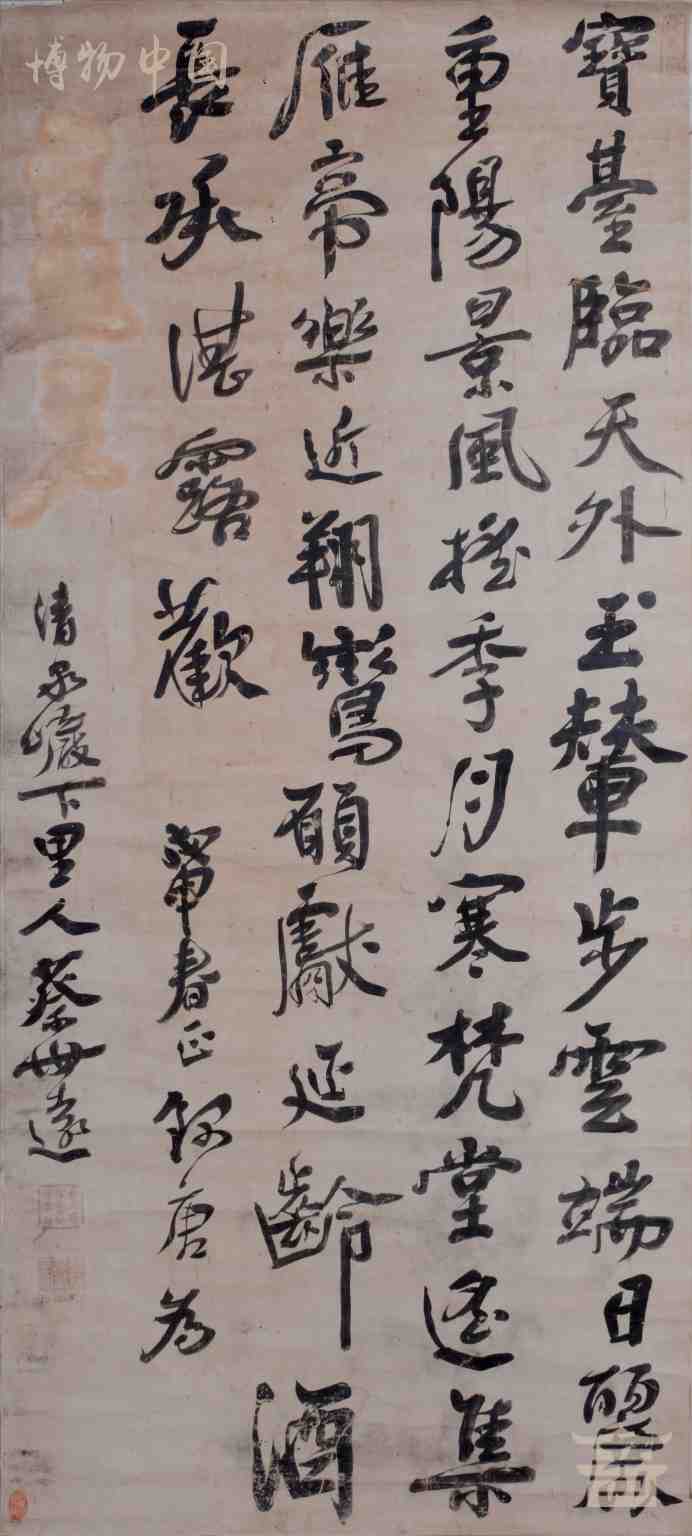 寶臺臨天外玉輦步雲端日麗
重陽景風搖季月寒梵堂遙集
雁帝樂近翔鸞願獻延齡酒
長承湛露歡
春正錄唐為
清泉巖下里人蔡世遠
博物中国